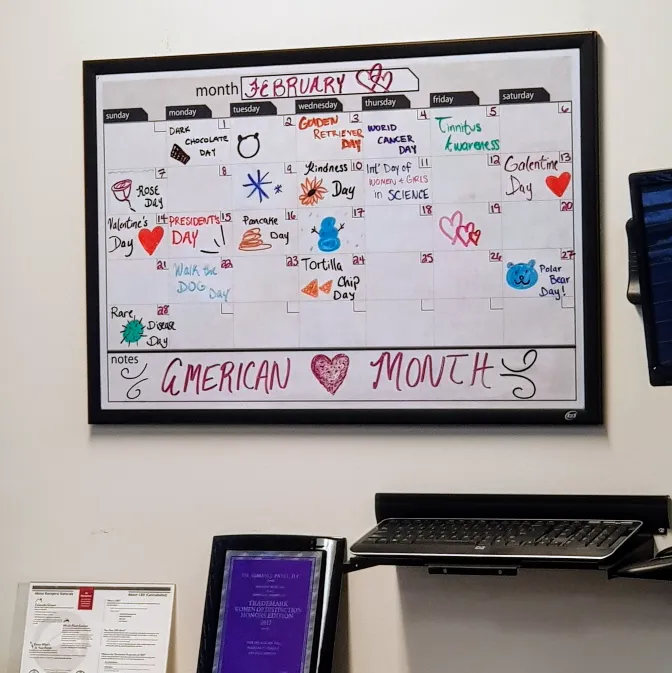 month FEBRUARY
sunday monday tuesday wednesday thursday friday saturday
1 2 3 4 5 6
DARK
CHOCOLATE
DAY
GOLDEN
RETRIEVER
DAY
WORLD
CANCER
DAY
Tinnitus
Awareness
7 8 9 10 11 12 13
ROSE
DAY
Kindness
Day
Int' Day of
WOMEN + GIRLS
in SCIENCE
Galentine
Day
14 15 16 17 18 19 20
Valentine's
Day
PRESIDENT'S
DAY
Pancake
Day
21 22 23 24 25 26 27
Walk the
DOG
Day
Tortilla
Chip
Day
Polar
Bear
Day!
28
Rare
Disease
Day
notes
AMERICAN MONTH
TRADEMARK
WOMEN OF DISTINCTION
HONORS EDITION
2017